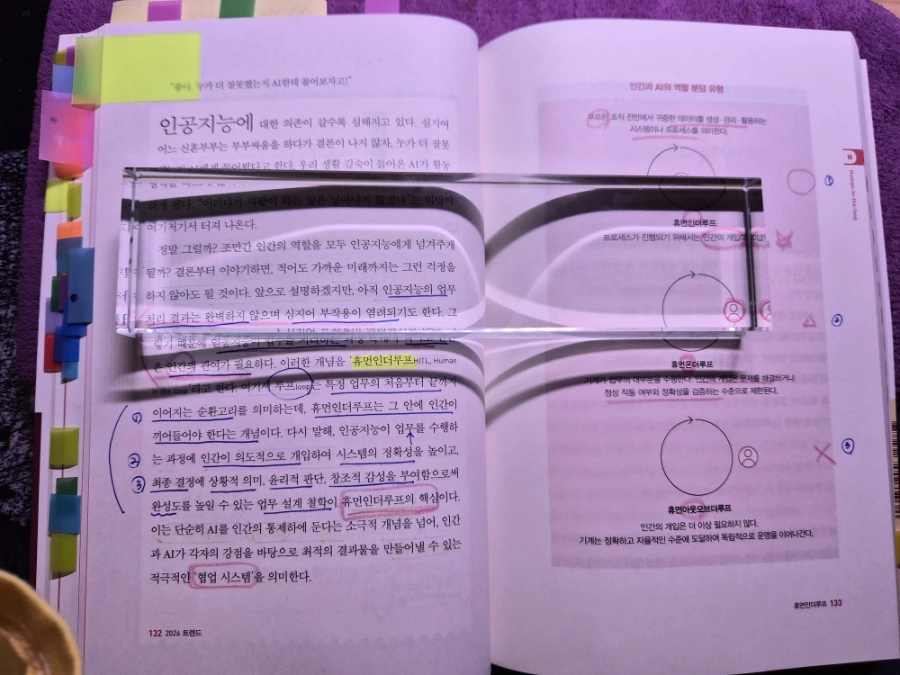 "쭝아, 누가 더 잘못했는지 AI한테 물어보자고!"
인공지능에 대한 의존이 갈수록 심해지고 있다. 심지어
어느 신혼부부는 부부싸움을 하다가 결론이 나지 않자, 누가 더 잘못
우리 생활 깊숙이 들어온 AI가 활동
여기저기서 터져 나온다.
정말 그럴까? 조만간 인간의 역할을 모두 인공지능에게 넘겨주게
될까? 결론부터 이야기하면, 적어도 가까운 미래까지는 그런 걱정을
하지 않아도 될 것이다. 앞으로 설명하겠지만, 아직 인공지능의 업무
처리 결과는 완벽하지 않으며 심지어 부작용이 염려되기도 한다. 그
인간의 관여가 필요하다. 이러한 개념을 '휴먼인더루프HITL, Human
라고 한다. 여기서 '루프loop'는 특정 업무의 처음부터 끝까지
① 이어지는 순환고리를 의미하는데, 휴먼인더루프는 그 안에 인간이
끼어들어야 한다는 개념이다. 다시 말해, 인공지능이 업무를 수행하
② 는 과정에 인간이 의도적으로 개입하여 시스템의 정확성을 높이고,
③ 최종 결정에 상황적 의미, 윤리적 판단, 창조적 감성을 부여함으로써
완성도를 높일 수 있는 업무 설계 철학이 휴먼인더루프의 핵심이다.
이는 단순히 AI를 인간의 통제하에 둔다는 소극적 개념을 넘어, 인간
과 AI가 각자의 강점을 바탕으로 최적의 결과물을 만들어낼 수 있는
적극적인 '협업 시스템'을 의미한다.
132 2026 트렌드
인간과 AI의 역할 분담 유형
루프란 조직 전반에서 귀중한 데이터를 생성·관리·활용하는
시스템이나 프로세스를 의미한다.
휴먼인더루프
프로세스가 진행되기 위해서는 인간의 개입이
휴먼온더루프
기계가 업무의 대부분을 수행한다. 인간의 개입은 문제를 해결하거나
정상 작동 여부와 정확성을 검증하는 수준으로 제한된다.
휴먼아웃오브더루프
인간의 개입은 더 이상 필요하지 않다.
기계는 정확하고 자율적인 수준에 도달하여 독립적으로 운영을 이어나간다.
Human-in-the-loop
휴먼인더루프 133